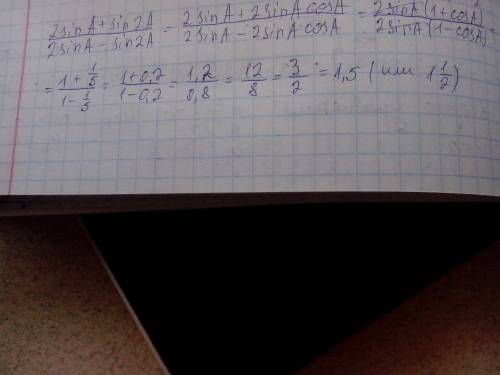 (2sinA+sin2A)/(2sinA-sin2A) = (2sinA+2sinA cosA)/(2sinA-2sinA cosA) = (2sinA(1+cosA))/(2sinA(1-cosA)) =
= (1+1/5)/(1-1/5) = (1+0,2)/(1-0,2) = 1,2/0,8 = 12/8 = 3/2 = 1,5 (или 1 1/2)